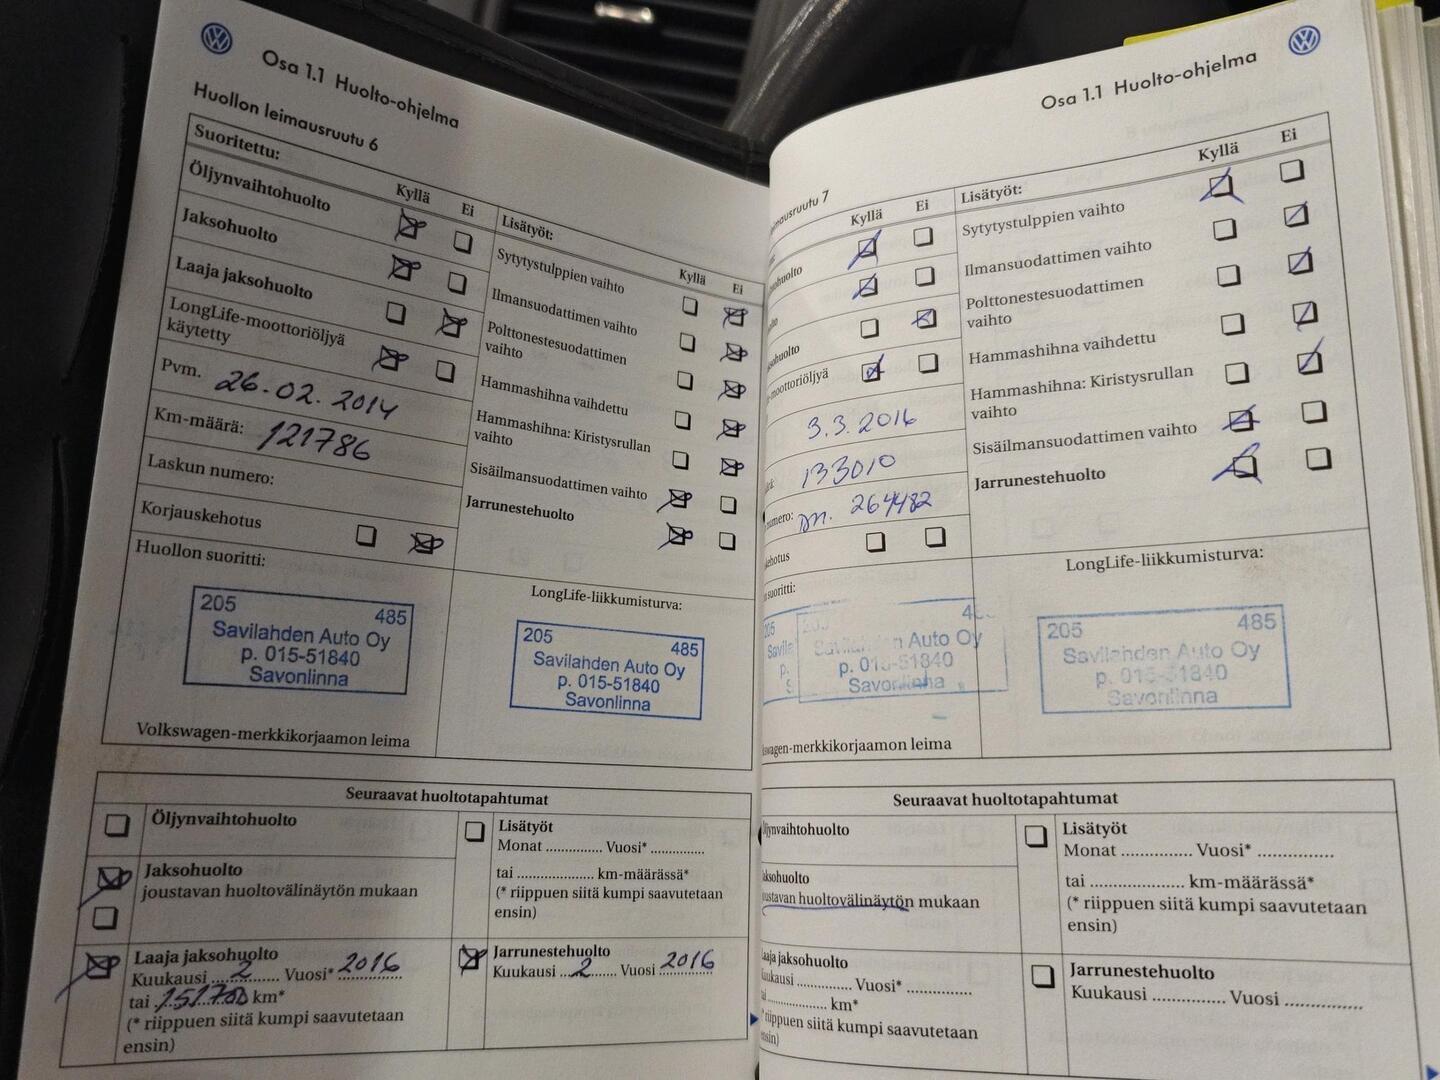 Osa 1.1 Huolto-ohjelma
Huollon leimausruutu 6
Suoritettu:
Kyllä Ei
Öljynvaihtohuolto
Jaksohuolto
Laaja jaksohuolto
LongLife-moottoriöljyä
käytetty
Pvm. 26.02.2014
Km-määrä: 121786
Laskun numero:
Korjauskehotus
Lisätyöt:
Kyllä Ei
Sytytystulppien vaihto
Ilmansuodattimen vaihto
Polttonestesuodattimen
vaihto
Hammashihna vaihdettu
Hammashihna: Kiristysrullan
vaihto
Sisäilmansuodattimen vaihto
Jarrunestehuolto
Huollon suoritti:
205 485
Savilahden Auto Oy
p. 015-51840
Savonlinna
Volkswagen-merkkikorjaamon leima
LongLife-liikkumisturva:
205 485
Savilahden Auto Oy
p. 015-51840
Savonlinna
Seuraavat huoltotapahtumat
Öljynvaihtohuolto
Jaksohuolto
joustavan huoltovälinäytön mukaan
Laaja jaksohuolto
Kuukausi 2 Vuosi* 2016
tai 151700 km*
(* riippuen siitä kumpi saavutetaan
ensin)
Lisätyöt
Monat .............. Vuosi* ..............
tai .................... km-määrässä*
(* riippuen siitä kumpi saavutetaan
ensin)
Jarrunestehuolto
Kuukausi 2 Vuosi 2016
Osa 1.1 Huolto-ohjelma
imausruutu 7
Kyllä Ei
ohuolto
olto
sohuolto
-moottoriöljyä
3.3.2016
133010
numero: 264482
kehotus
Lisätyöt:
Kyllä Ei
Sytytystulppien vaihto
Ilmansuodattimen vaihto
Polttonestesuodattimen
vaihto
Hammashihna vaihdettu
Hammashihna: Kiristysrullan
vaihto
Sisäilmansuodattimen vaihto
Jarrunestehuolto
suoritti:
205
Savilahden Auto Oy
p. 015-51840
Savonlinna
swagen-merkkikorjaamon leima
LongLife-liikkumisturva:
205 485
Savilahden Auto Oy
p. 015-51840
Savonlinna
Seuraavat huoltotapahtumat
ljynvaihtohuolto
aksohuolto
oustavan huoltovälinäytön mukaan
aaja jaksohuolto
uukausi .............. Vuosi* ..............
.................. km*
riippuen siitä kumpi saavutetaan
sin)
Lisätyöt
Monat .............. Vuosi* ..............
tai .................... km-määrässä*
(* riippuen siitä kumpi saavutetaan
ensin)
Jarrunestehuolto
Kuukausi .............. Vuosi ..............